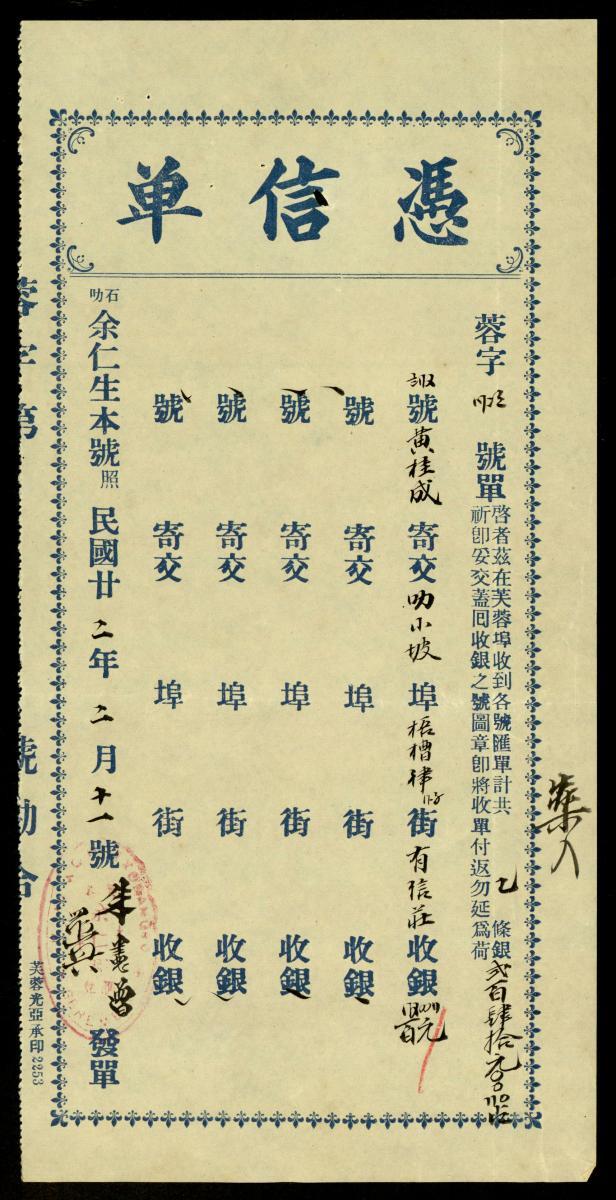 憑信单
蓉字 號單
啓者茲在芙蓉埠收到各號匯單計共 條銀弍百肆拾元
祈卽妥交蓋囘收銀之號圖章卽將收單付返勿延爲荷
號黄桂成寄交叻小坡埠梧槽律街有信莊收銀
號 寄交 埠 街 收銀
號 寄交 埠 街 收銀
號 寄交 埠 街 收銀
號 寄交 埠 街 收銀
石叻余仁生本號照 民國廿二年二月十一號 發單
芙蓉光亞承印 2253
蓉字第 號勘合